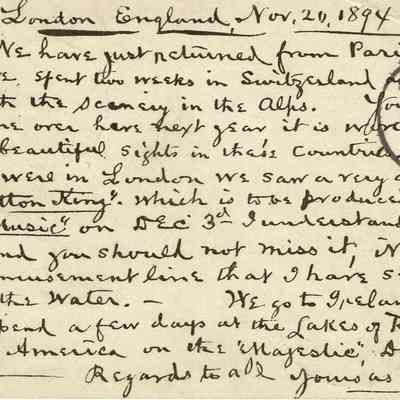 London England, Nov. 20, 1894
We have just returned from Pari
e. spent two weeks in Switzerland
the scenery in the Alps. You
me over here next year it is wor
beautiful sights in these Countries
were in London we saw a very
tton King". which is to be produce
Music" on DEC 3rd I understand
nd you should not miss it, N
musement line that I have s
the Water. — We go to Irelan
pend a few days at the Lakes of K
America on the "Majestic", D
Regards to all yours as